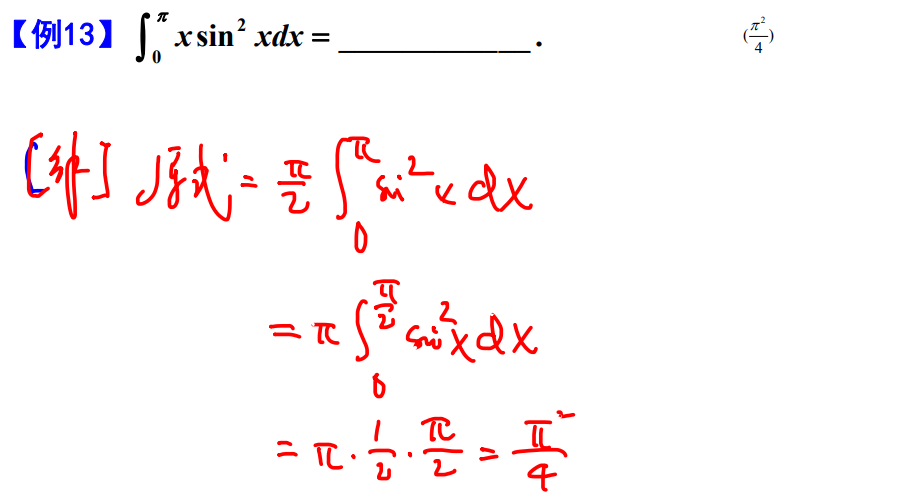 【例13】 ∫₀^π x sin² x dx = ____________ . (π²/4)
[解] 原式 = π/2 ∫₀^π sin² x dx
= π ∫₀^(π/2) sin² x dx
= π · 1/2 · π/2 = π²/4